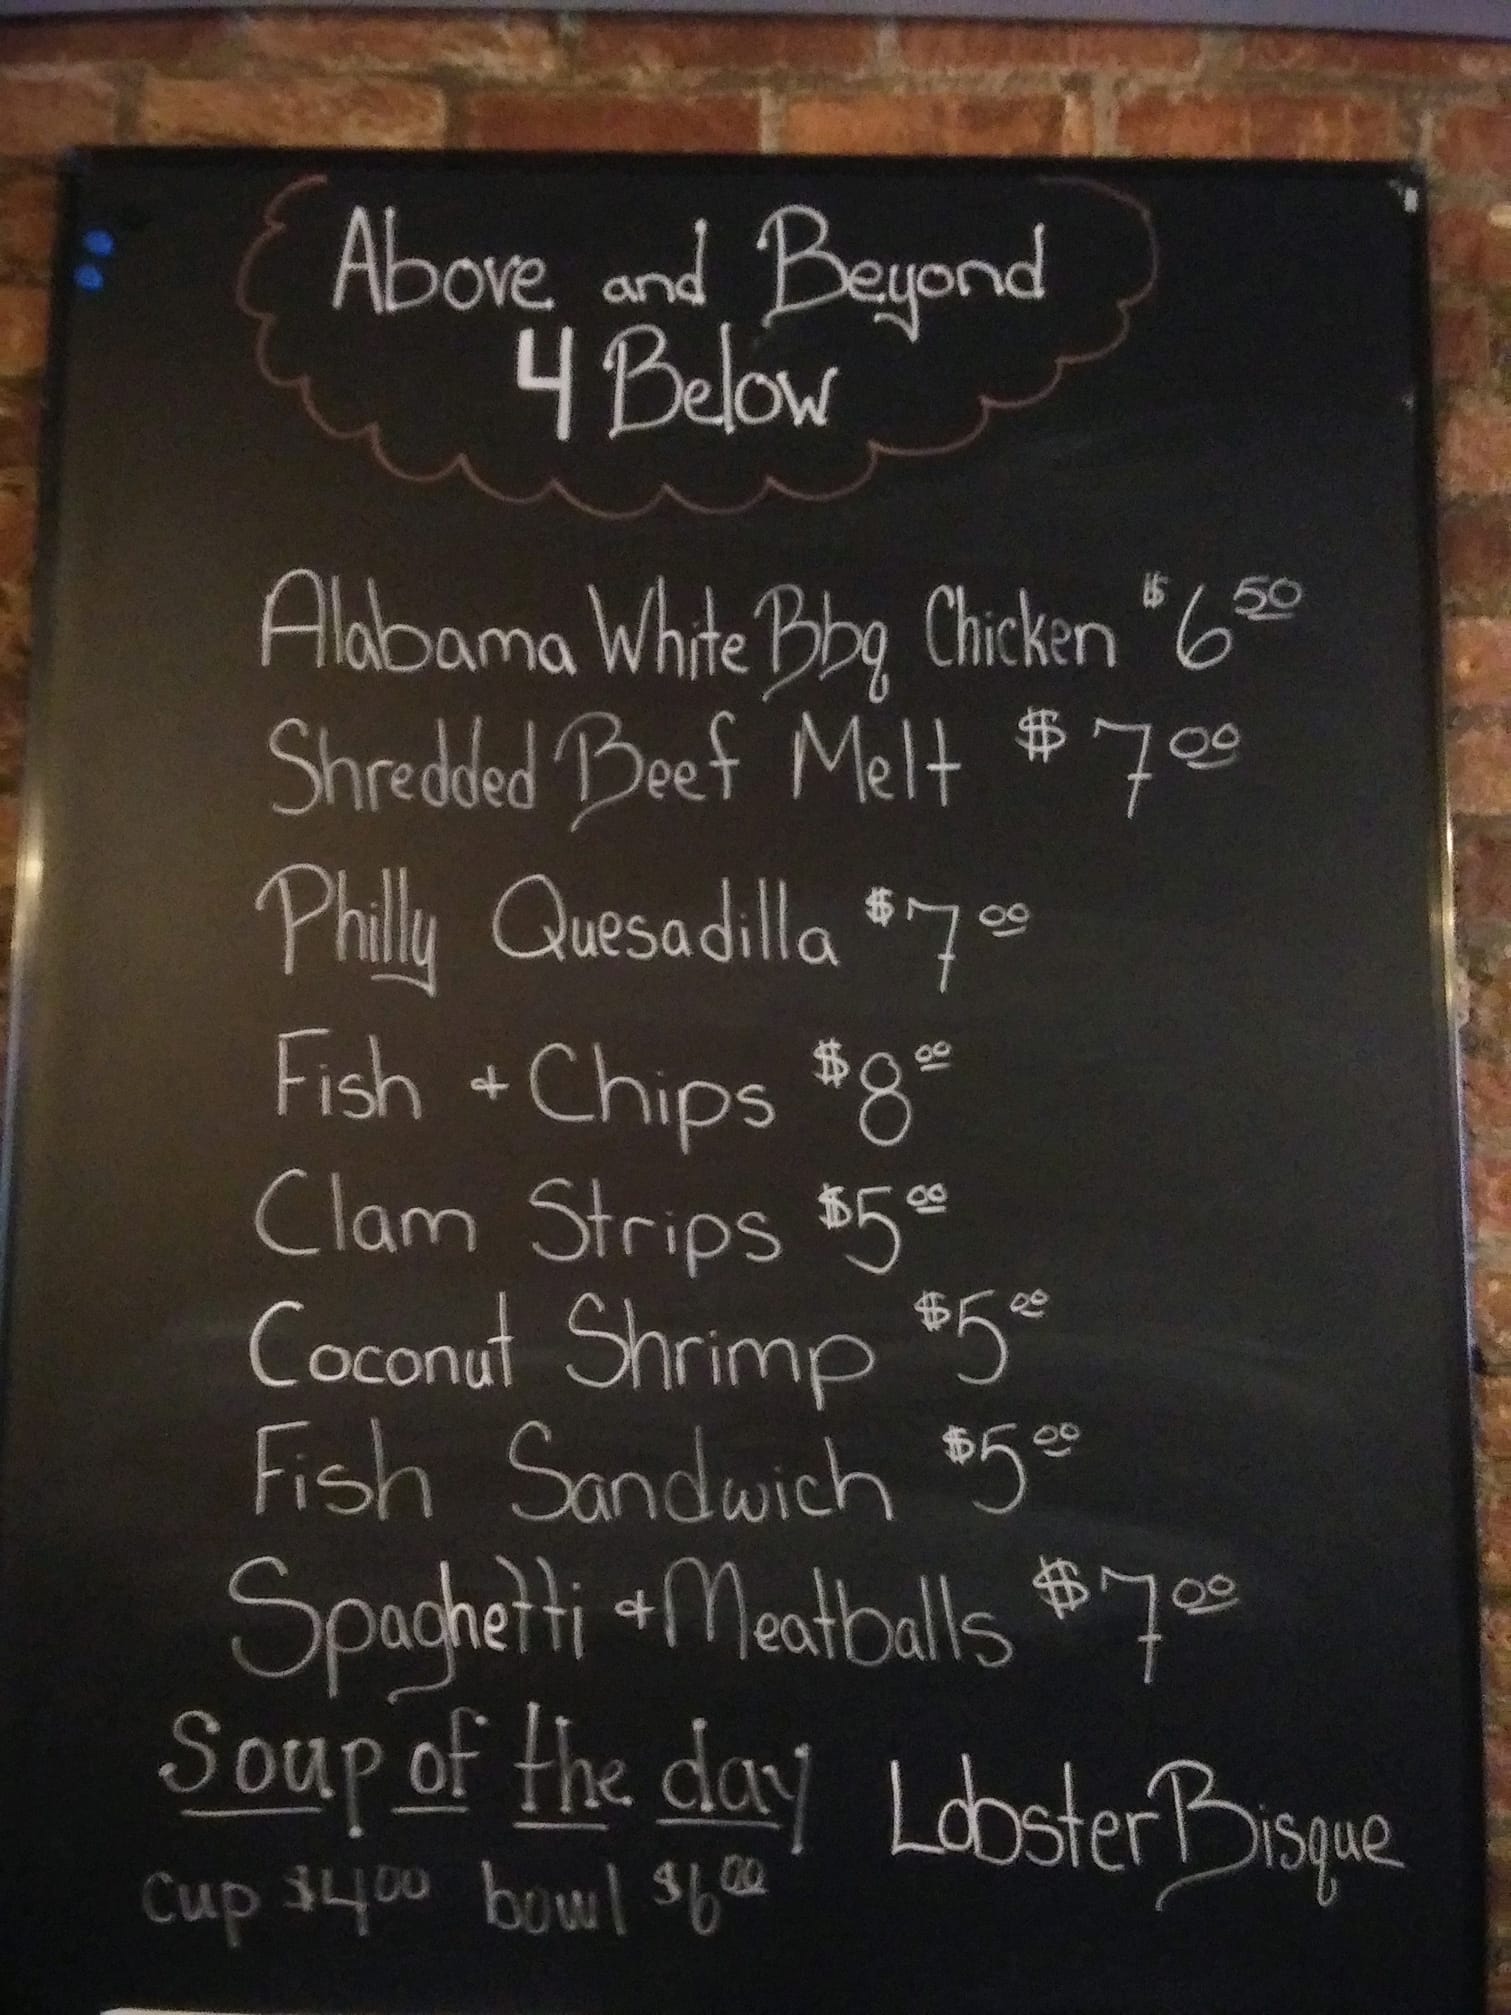 Above and Beyond
4 Below
Alabama White Bbq Chicken $6 50
Shredded Beef Melt $7 00
Philly Quesadilla $7 00
Fish + Chips $8 00
Clam Strips $5 00
Coconut Shrimp $5 00
Fish Sandwich $5 00
Spaghetti + Meatballs $7 00
Soup of the day Lobster Bisque
cup $4 00 bowl $6 00